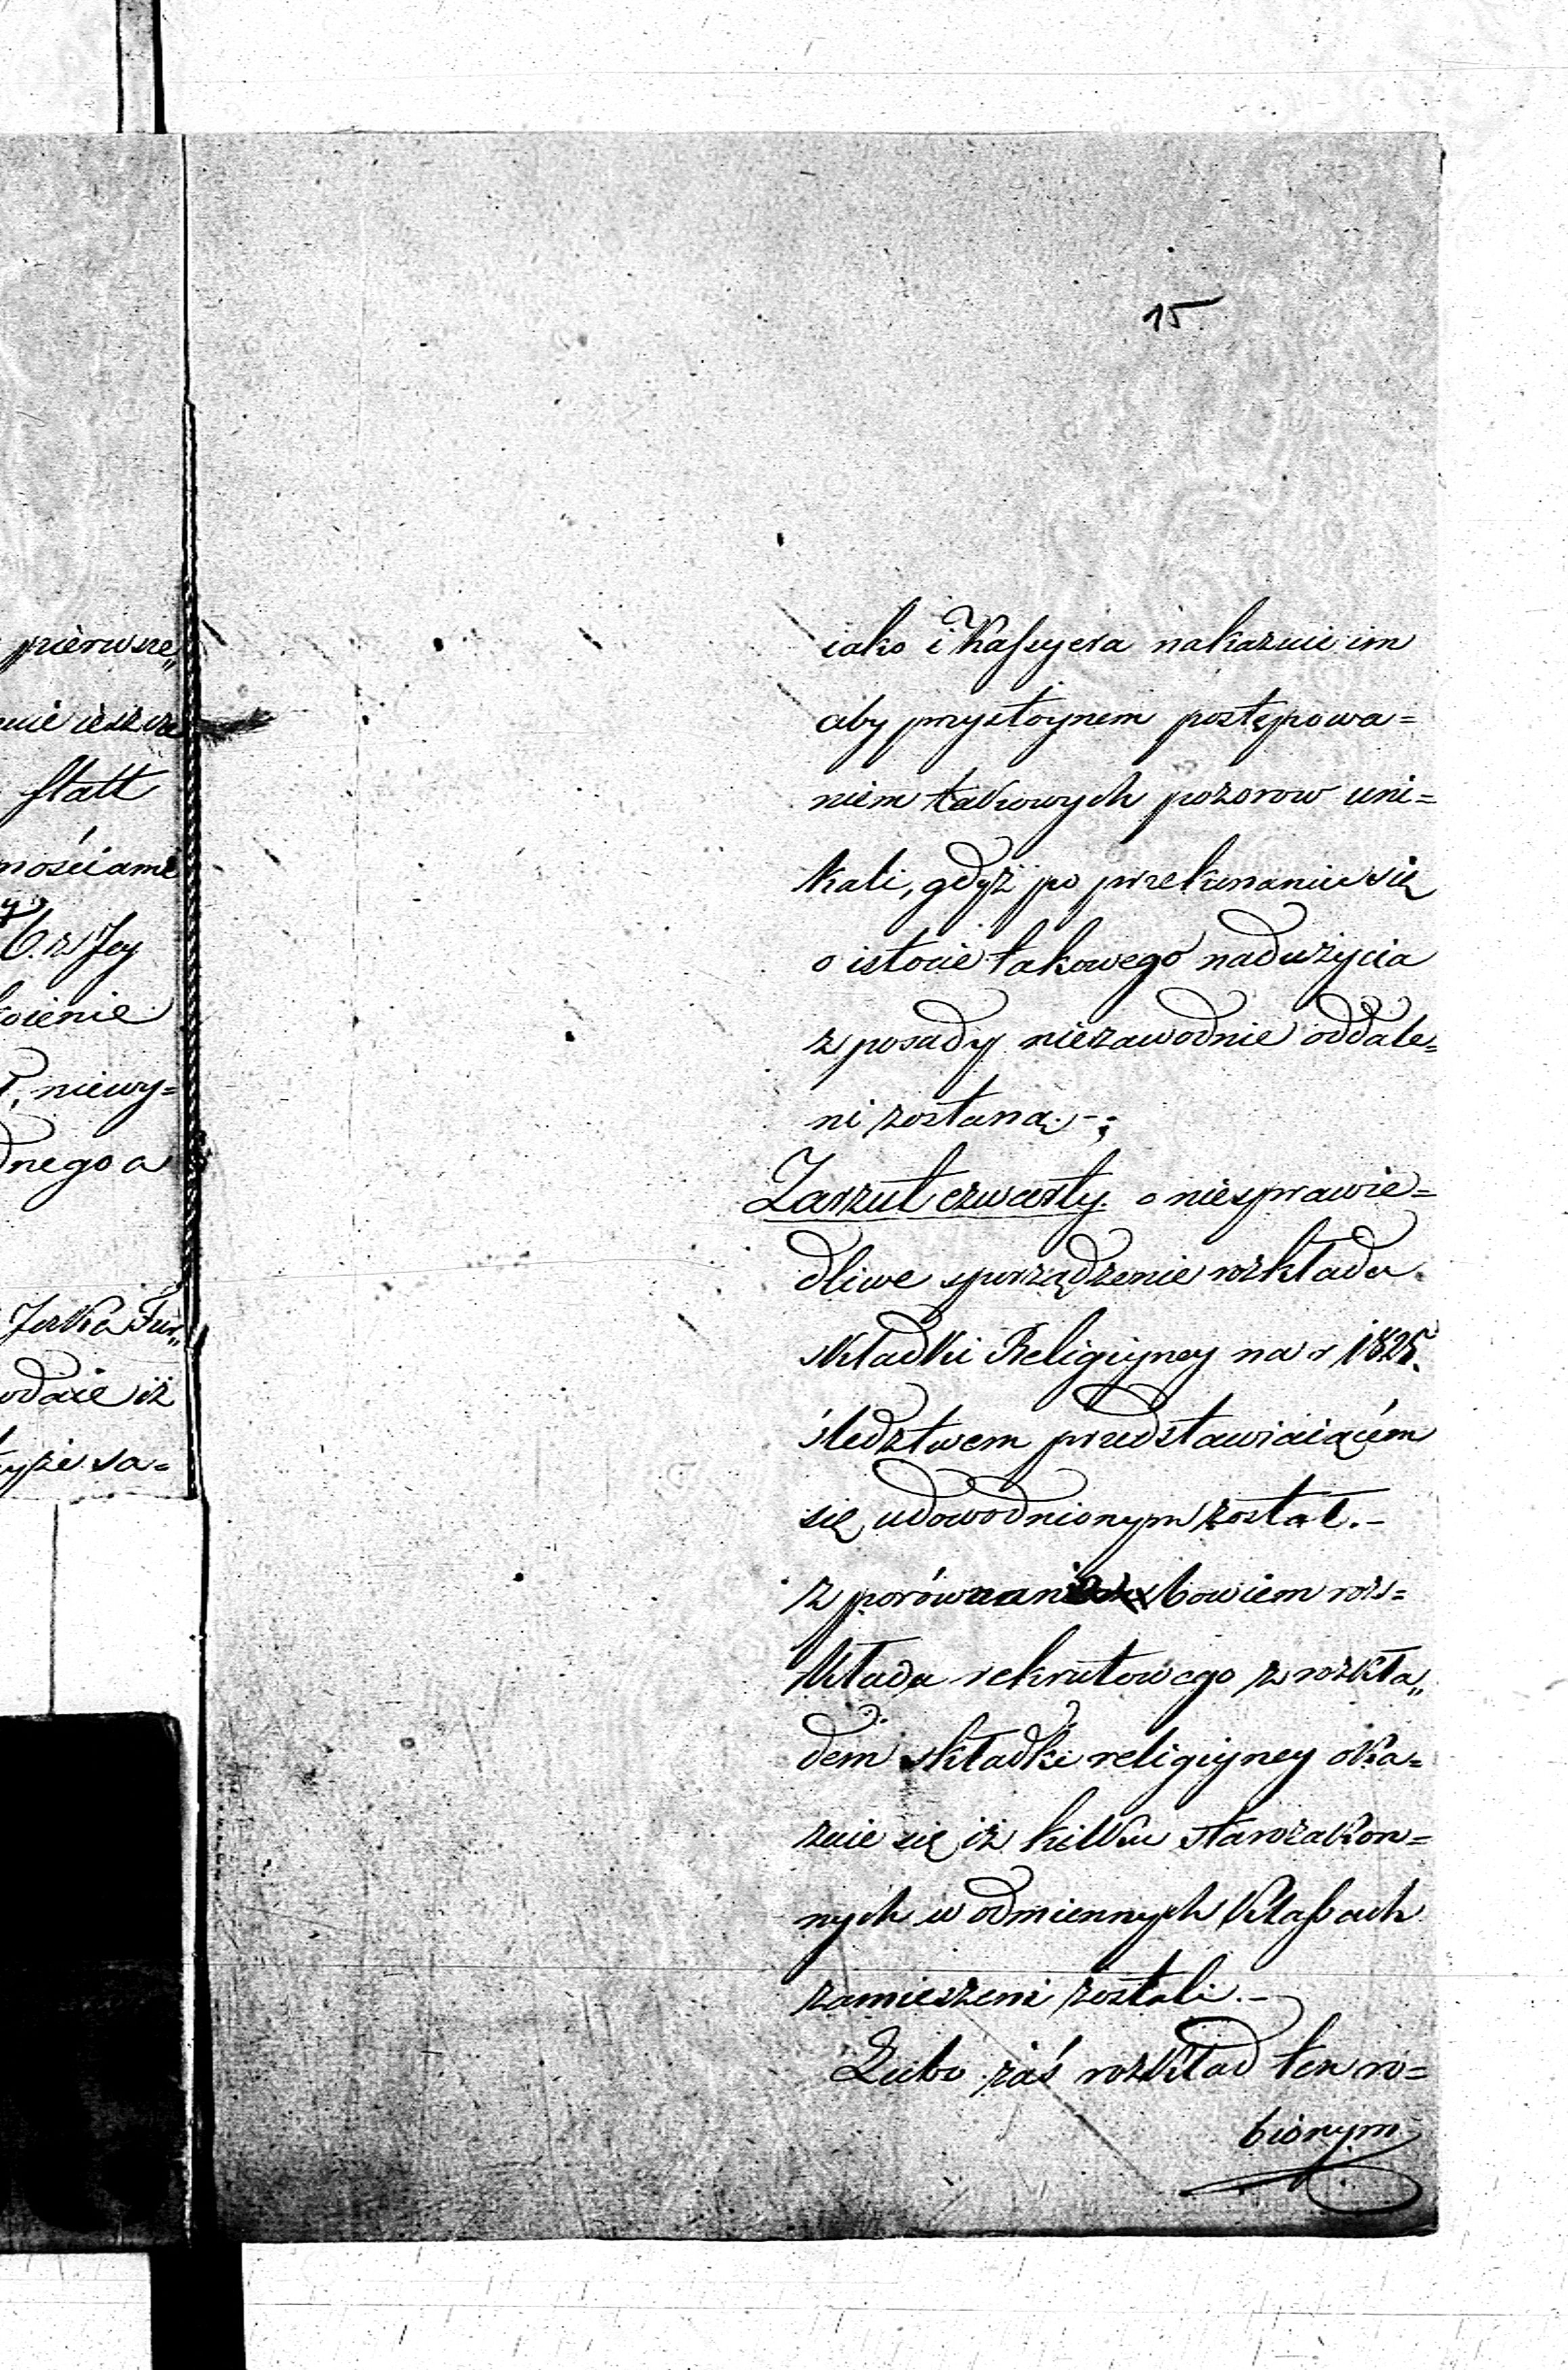 15.
iako i Kassyera nakazuie im
aby przystoynem postępowa=
niem takowych pozorow uni=
kali, gdyż po przekonaniu się
o istocie takowego nadużycia
z posady niezawodnie oddale=
ni zostaną.-;
Zarzut czwarty. o niesprawie=
dliwe sporządzenie rozkładu
składki Religiyney na r 1825.
śledztwem przedstawiaiącém
się udowodnionym został.-
z porównania bowiem roz=
kładu rekrutowego z rozkła„
dem składki religiyney oka=
zuie się iż kilku starozakon=
nych w odmiennych Klassach
zamieszczeni zostali.-
Lubo zaś rozkład ten ro=
bionym
pierwsze„
ieszcze
statt
nościami
y
b. z Jey
oienie
niewy=
dnego a
Jośka Fur„
odaie iż
yże sa=